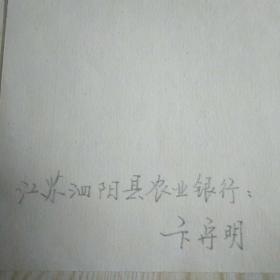 江苏泗阳县农业银行：
卞存明